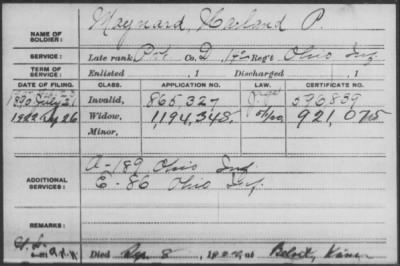 Maynard, Harland P.
NAME OF SOLDIER:
SERVICE: Late rank, Pvt Co. D, Reg't Ohio Inf
TERM OF SERVICE: Enlisted , 1 Discharged , 1
DATE OF FILING. CLASS. APPLICATION NO. LAW. CERTIFICATE NO.
1890 July 21 Invalid, 865,327 590,859
1922 Sep 26 Widow, 1,194,348. 921,075
Minor,
ADDITIONAL SERVICES:
A-189 Ohio Inf
E-86 Ohio Inf.
REMARKS:
Died Sep. 8, , at Beloit, Kans